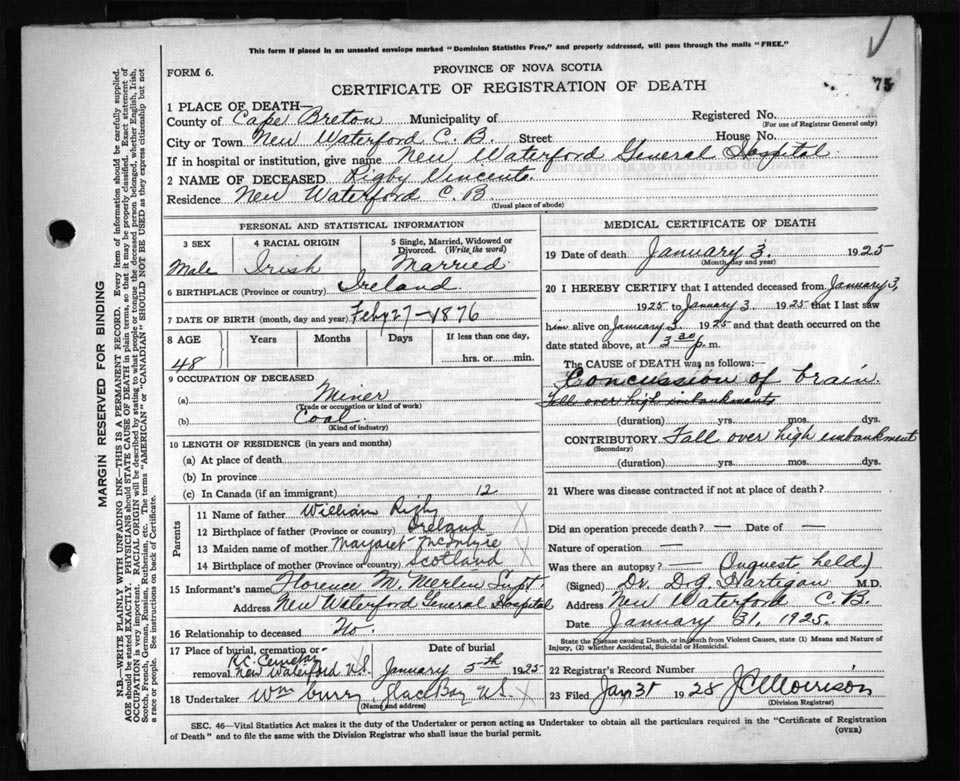 This form if placed in an unsealed envelope marked "Dominion Statistics Free," and properly addressed, will pass through the mails "FREE."
FORM 6.
PROVINCE OF NOVA SCOTIA
75
CERTIFICATE OF REGISTRATION OF DEATH
1 PLACE OF DEATH—
County of Cape Breton Municipality of Registered No.
(For use of Registrar General only)
City or Town New Waterford C. B. Street House No.
If in hospital or institution, give name New Waterford General Hospital
2 NAME OF DECEASED Rigby Vincent.
Residence New Waterford C. B.
(Usual place of abode)
PERSONAL AND STATISTICAL INFORMATION
3 SEX 4 RACIAL ORIGIN 5 Single, Married, Widowed or Divorced. (Write the word)
Male Irish Married
6 BIRTHPLACE (Province or country) Ireland
7 DATE OF BIRTH (month, day and year) Feby 27-1876
8 AGE Years Months Days If less than one day,
48 hrs. or min.
9 OCCUPATION OF DECEASED
(a) Miner
(Trade or occupation or kind of work)
(b) Coal
(Kind of industry)
10 LENGTH OF RESIDENCE (in years and months)
(a) At place of death
(b) In province
(c) In Canada (if an immigrant) 12
Parents
11 Name of father William Rigby
12 Birthplace of father (Province or country) Ireland
13 Maiden name of mother Margaret McIntyre
14 Birthplace of mother (Province or country) Scotland
15 Informant's name Florence M. Merlin Supt.
Address New Waterford General Hospital
16 Relationship to deceased No.
17 Place of burial, cremation or removal Date of burial
R.C. Cemetery
New Waterford N.S. January 5th 1925
18 Undertaker Wm Curry Glace Bay N.S.
(Name and address)
MEDICAL CERTIFICATE OF DEATH
19 Date of death January 3. 1925
(Month, day and year)
20 I HEREBY CERTIFY that I attended deceased from January 3,
1925 to January 3 1925 that I last saw
him alive on January 3 1925 and that death occurred on
date stated above, at 3 30 p. m.
The CAUSE of DEATH was as follows:—
Concussion of brain.
Fall over high embankments
(duration) yrs. mos. dys.
CONTRIBUTORY Fall over high embankment
(Secondary)
(duration) yrs. mos. dys.
21 Where was disease contracted if not at place of death?
Did an operation precede death? — Date of —
Nature of operation —
Was there an autopsy? — (Inquest held)
(Signed) Dr. D. G. Hartigan M.D.
Address New Waterford C B
Date January 31. 1925.
State the Disease causing Death, or in death from Violent Causes, state (1) Means and Nature of Injury, (2) whether Accidental, Suicidal or Homicidal.
22 Registrar's Record Number
23 Filed Jan 31 1925 J C Morrison
(Division Registrar)
SEC. 46—Vital Statistics Act makes it the duty of the Undertaker or person acting as Undertaker to obtain all the particulars required in the "Certificate of Registration
of Death" and to file the same with the Division Registrar who shall issue the burial permit.
(OVER)
MARGIN RESERVED FOR BINDING
N.B.—WRITE PLAINLY WITH UNFADING INK—THIS IS A PERMANENT RECORD. Every item of information should be carefully supplied.
AGE should be stated EXACTLY. PHYSICIANS should STATE CAUSE OF DEATH in plain terms, so that it may be properly classified. Exact statement of
OCCUPATION is very important. RACIAL ORIGIN will be described by stating to what people or tongue the deceased person belonged, whether English, Irish,
Scotch, French, German, Russian, Ruthenian, etc. The terms "AMERICAN" or "CANADIAN" SHOULD NOT BE USED as they express citizenship but not
a race or people. See instructions on back of Certificate.